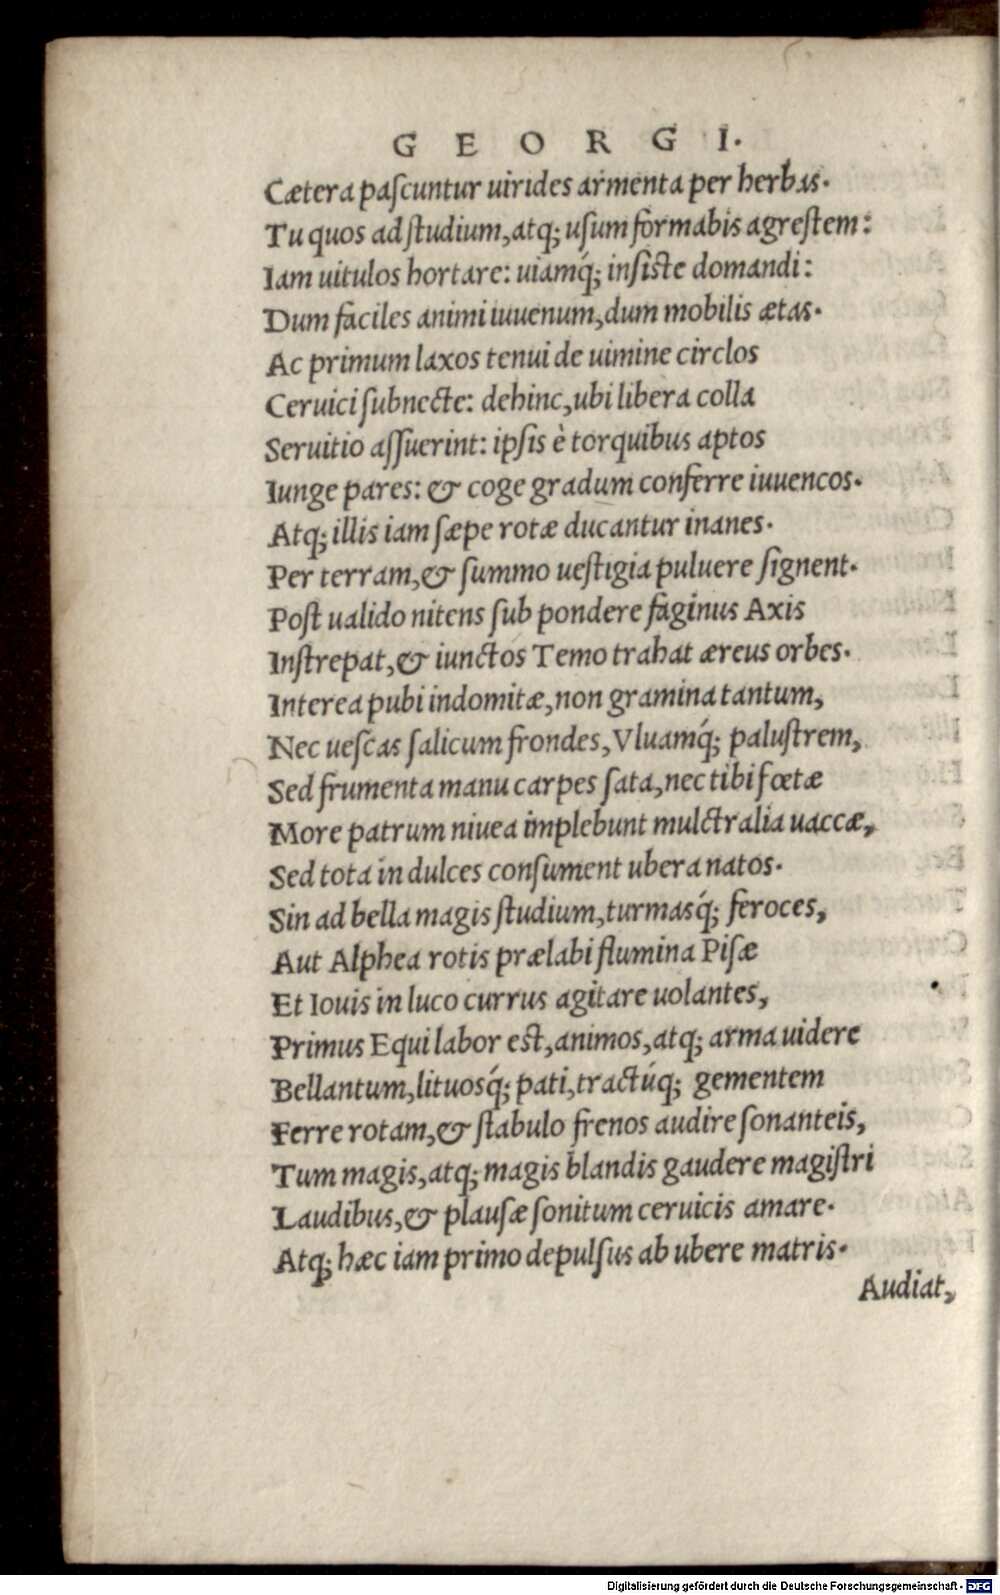 G E O R G I.
Cætera paſcuntur uirides armenta per herbas.
Tu quos ad ſtudium, atq; uſum formabis agreſtem:
Iam uitulos hortare: uiamq́; inſiſte domandi:
Dum faciles animi iuuenum, dum mobilis ætas.
Ac primum laxos tenui de uimine circlos
Ceruici ſubnecte: dehinc, ubi libera colla
Seruitio aſſuerint: ipſis è torquibus aptos
Iunge pares: & coge gradum conferre iuuencos.
Atq; illis iam ſæpe rotæ ducantur inanes.
Per terram, & ſummo ueſtigia puluere ſignent.
Poſt ualido nitens ſub pondere faginus Axis
Inſtrepat, & iunctos Temo trahat æreus orbes.
Interea pubi indomitæ, non gramina tantum,
Nec ueſcas ſalicum frondes, Vluamq́; paluſtrem,
Sed frumenta manu carpes ſata, nec tibi fœtæ
More patrum niuea implebunt mulctralia uaccæ,
Sed tota in dulces conſument ubera natos.
Sin ad bella magis ſtudium, turmasq́; feroces,
Aut Alphea rotis prælabi flumina Piſæ
Et Iouis in luco currus agitare uolantes,
Primus Equi labor eſt, animos, atq; arma uidere
Bellantum, lituosq́; pati, tractúq; gementem
Ferre rotam, & ſtabulo frenos audire ſonanteis,
Tum magis, atq; magis blandis gaudere magiſtri
Laudibus, & plauſæ ſonitum ceruicis amare.
Atq; hæc iam primo depulſus ab ubere matris.
Audiat,
Digitalisierung gefördert durch die Deutsche Forschungsgemeinschaft - DFG